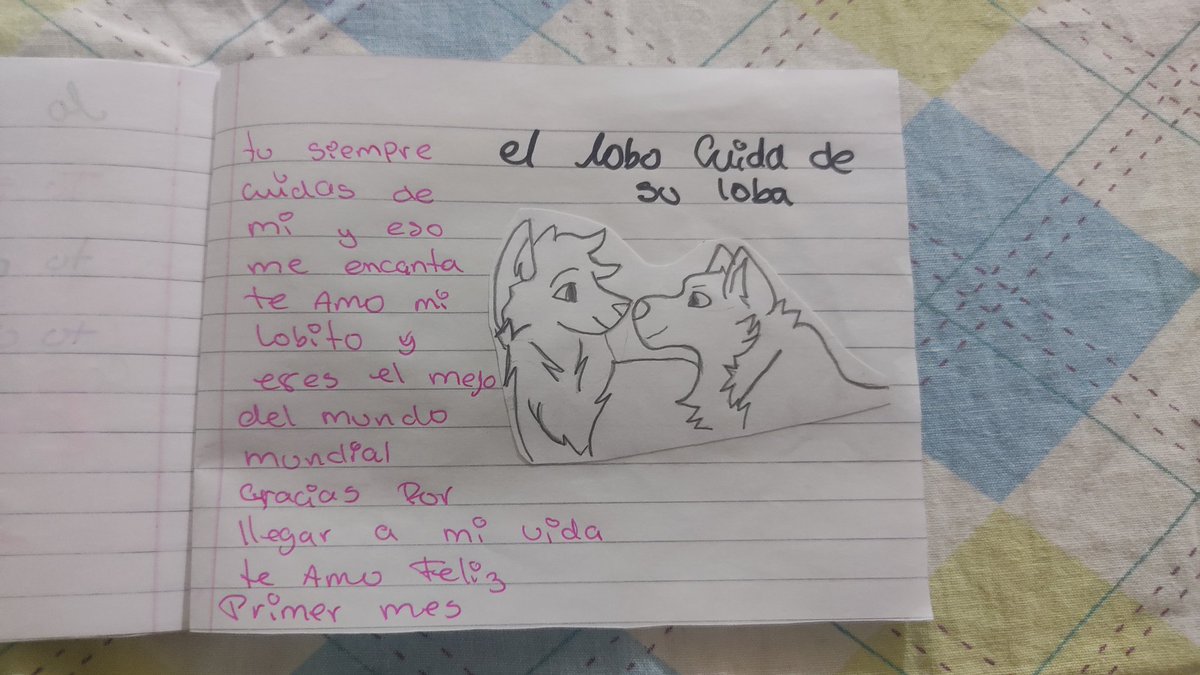 el lobo Cuida de
su loba
tu siempre
cuidas de
mi y eso
me encanta
te Amo mi
Lobito y
eres el mejo
del mundo
mundial
Gracias Por
llegar a mi vida
te Amo Feliz
Primer mes